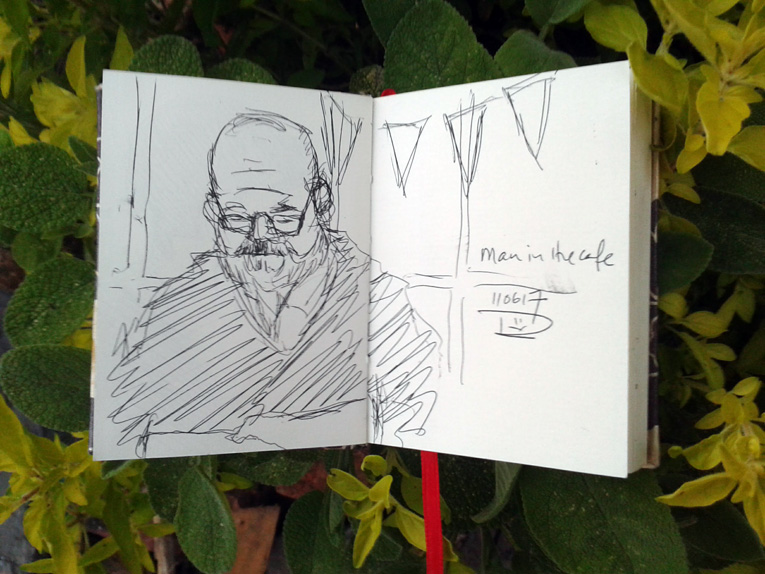 Man in the cafe
110617